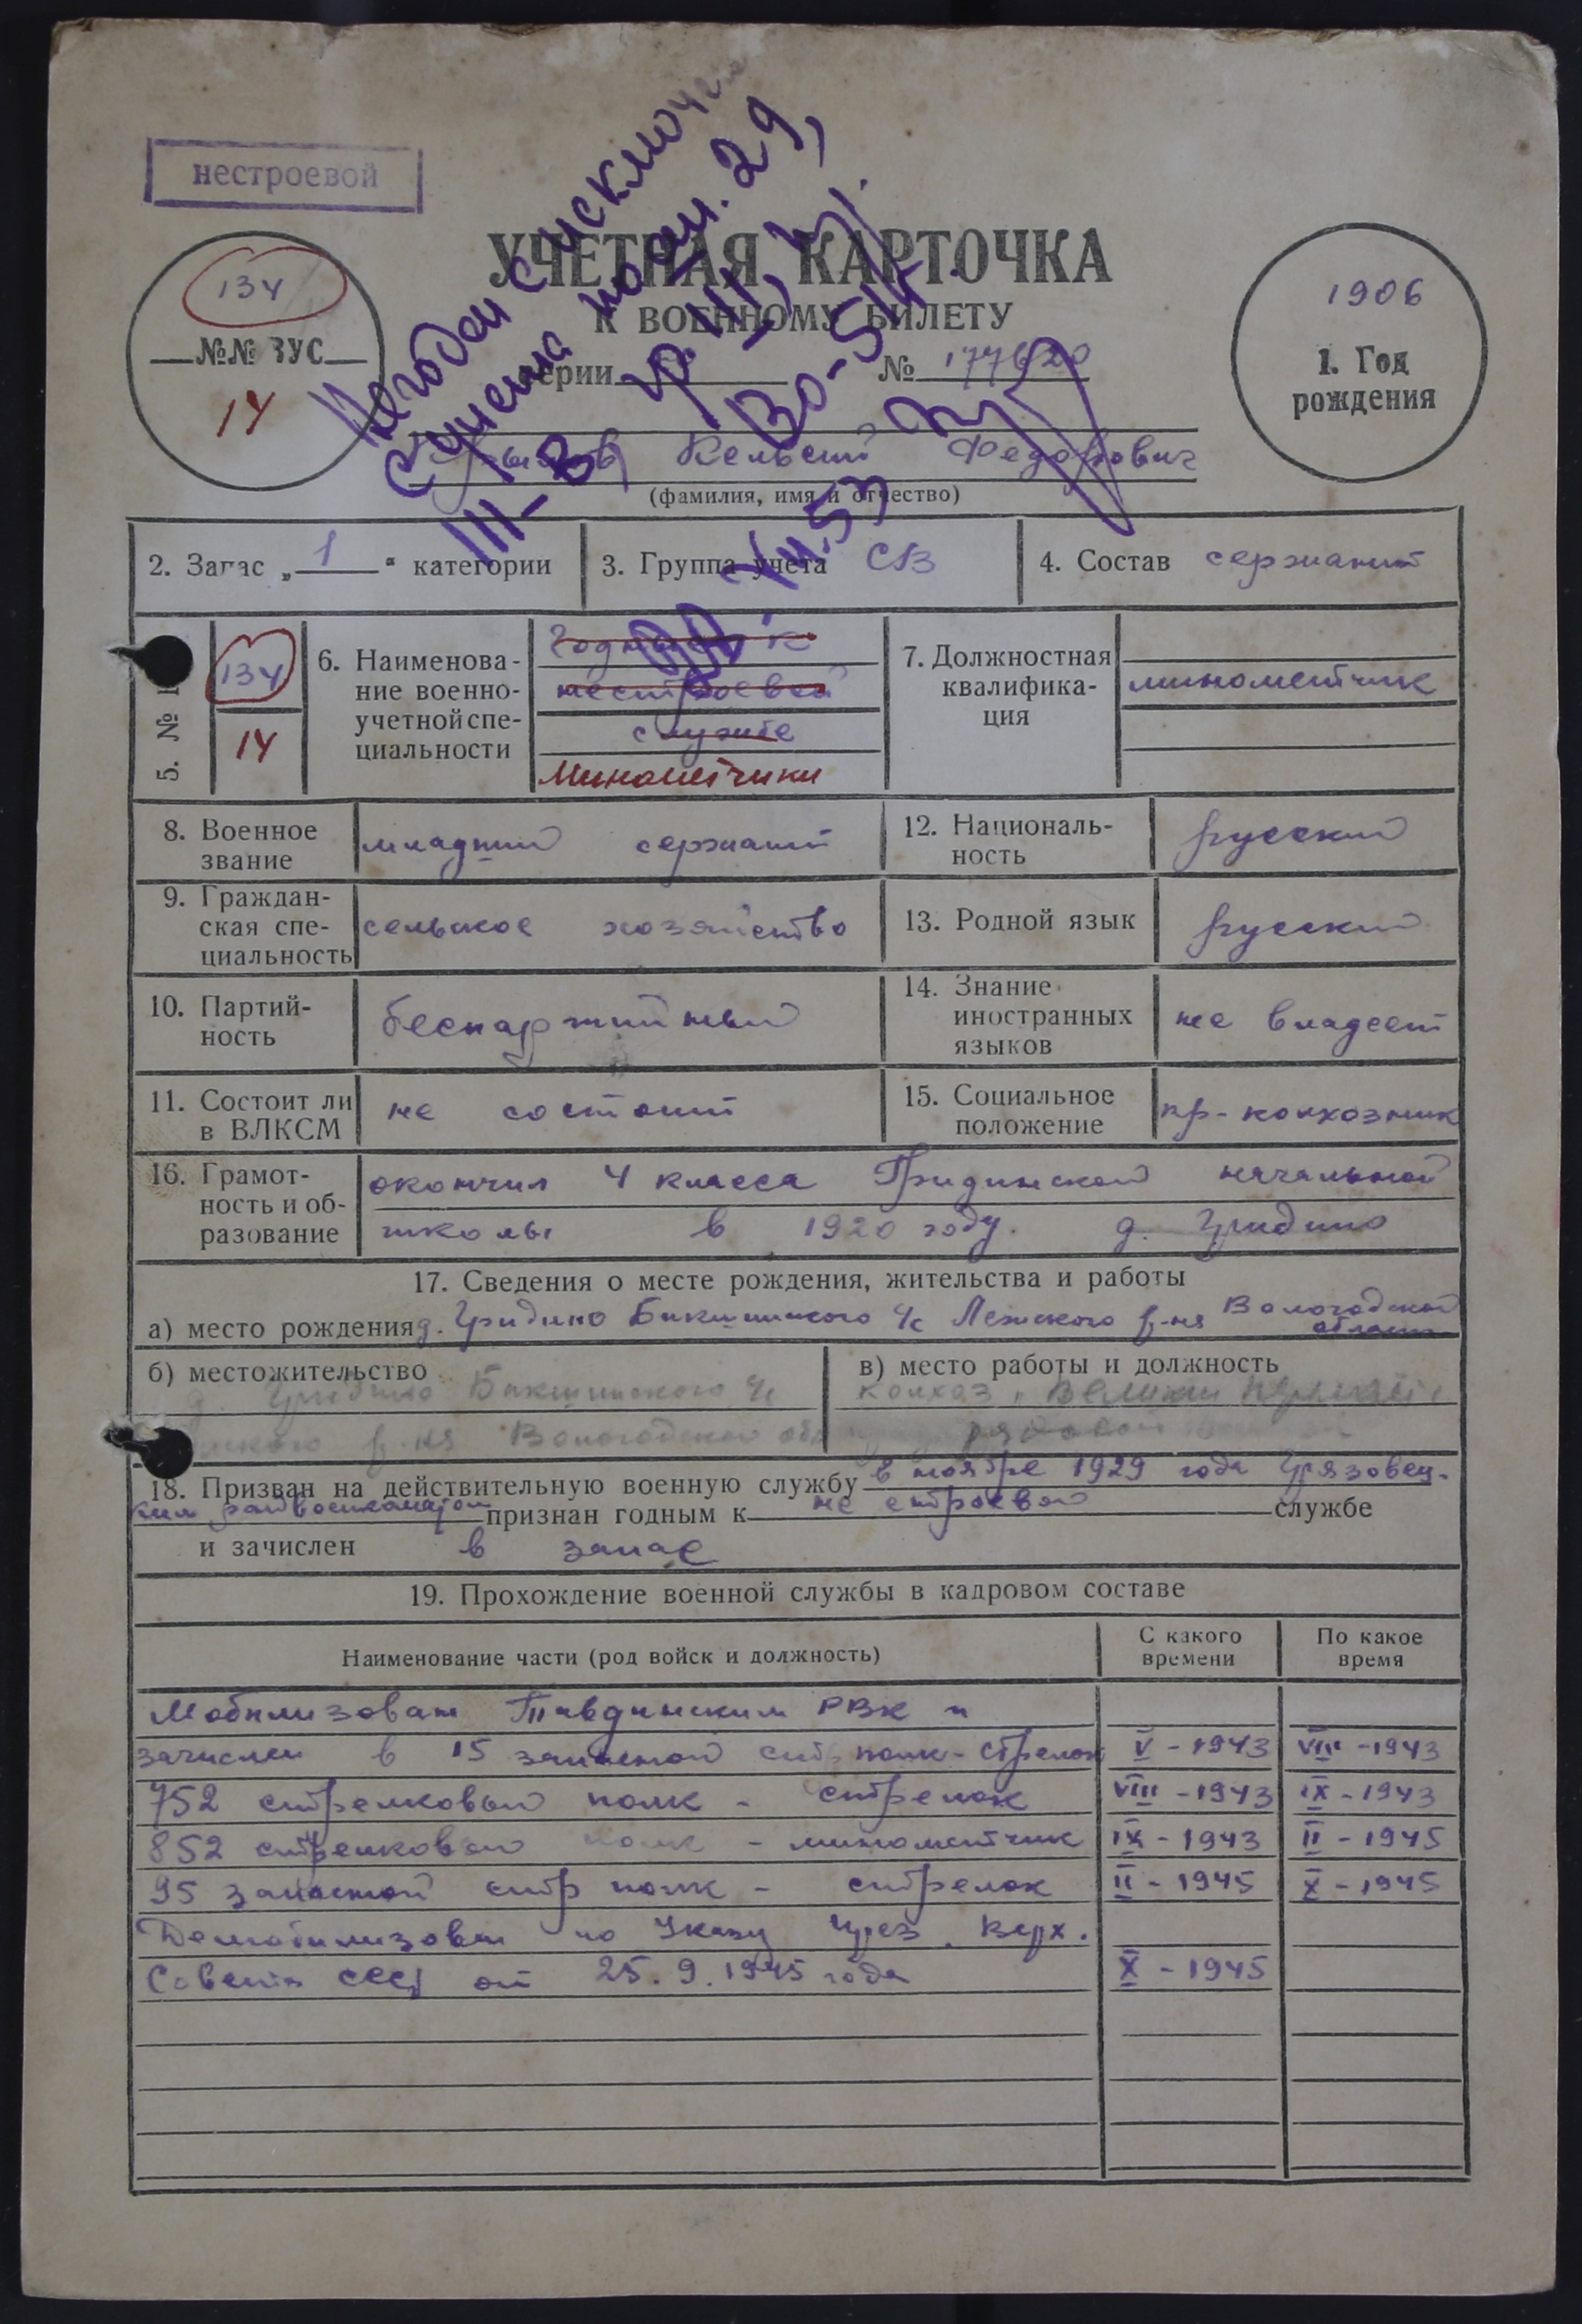 нестроевой
134
№№ ВУС
14
УЧЕТНАЯ КАРТОЧКА
К ВОЕННОМУ БИЛЕТУ
серии № 177620
1906
1. Год
рождения
Негоден с исключ
с учета по ст. 29,
III-В гр. III,
Федорович
(фамилия, имя и отчество)
2. Запас „ 1 “ категории
3. Группа учета СВ
4. Состав сержант
5. №
134
14
6. Наименова-
ние военно-
учетной спе-
циальности
Годный к
нестроевой
службе
Минометчики
7. Должностная
квалифика-
ция
минометчик
8. Военное
звание
младший сержант
12. Националь-
ность
русский
9. Граждан-
ская спе-
циальность
сельское хозяйство
13. Родной язык
русский
10. Партий-
ность
беспартийный
14. Знание
иностранных
языков
не владеет
11. Состоит ли
в ВЛКСМ
не состоит
15. Социальное
положение
кр-колхозник
16. Грамот-
ность и об-
разование
окончил 4 класса Гридинской начальной
школы в 1920 году. д. Гридино
17. Сведения о месте рождения, жительства и работы
а) место рождения д. Гридино Бакшинского с/с Лежского р-на Вологодской
области
б) местожительство
д. Гридино Бакшинского с/с
р-на Вологодской обл
в) место работы и должность
колхоз „Великий
рядовой
18. Призван на действительную военную службу в ноябре 1929 года Грязовец-
ким райвоенкоматом признан годным к не строевой службе
и зачислен в запас
19. Прохождение военной службы в кадровом составе
Наименование части (род войск и должность)
С какого
времени
По какое
время
Мобилизован Тавдинским РВК и
зачислен в 15 запасной стр полк - стрелок V - 1943 VIII - 1943
752 стрелковый полк - стрелок VIII - 1943 IX - 1943
852 стрелковый полк - минометчик IX - 1943 II - 1945
95 запасной стр полк - стрелок II - 1945 X - 1945
Демобилизован по Указу През. Верх.
Совета СССР от 25.9.1945 года X - 1945